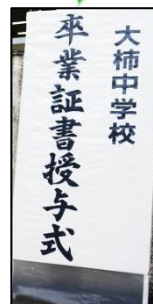 大柿中学校
卒業証書授与式